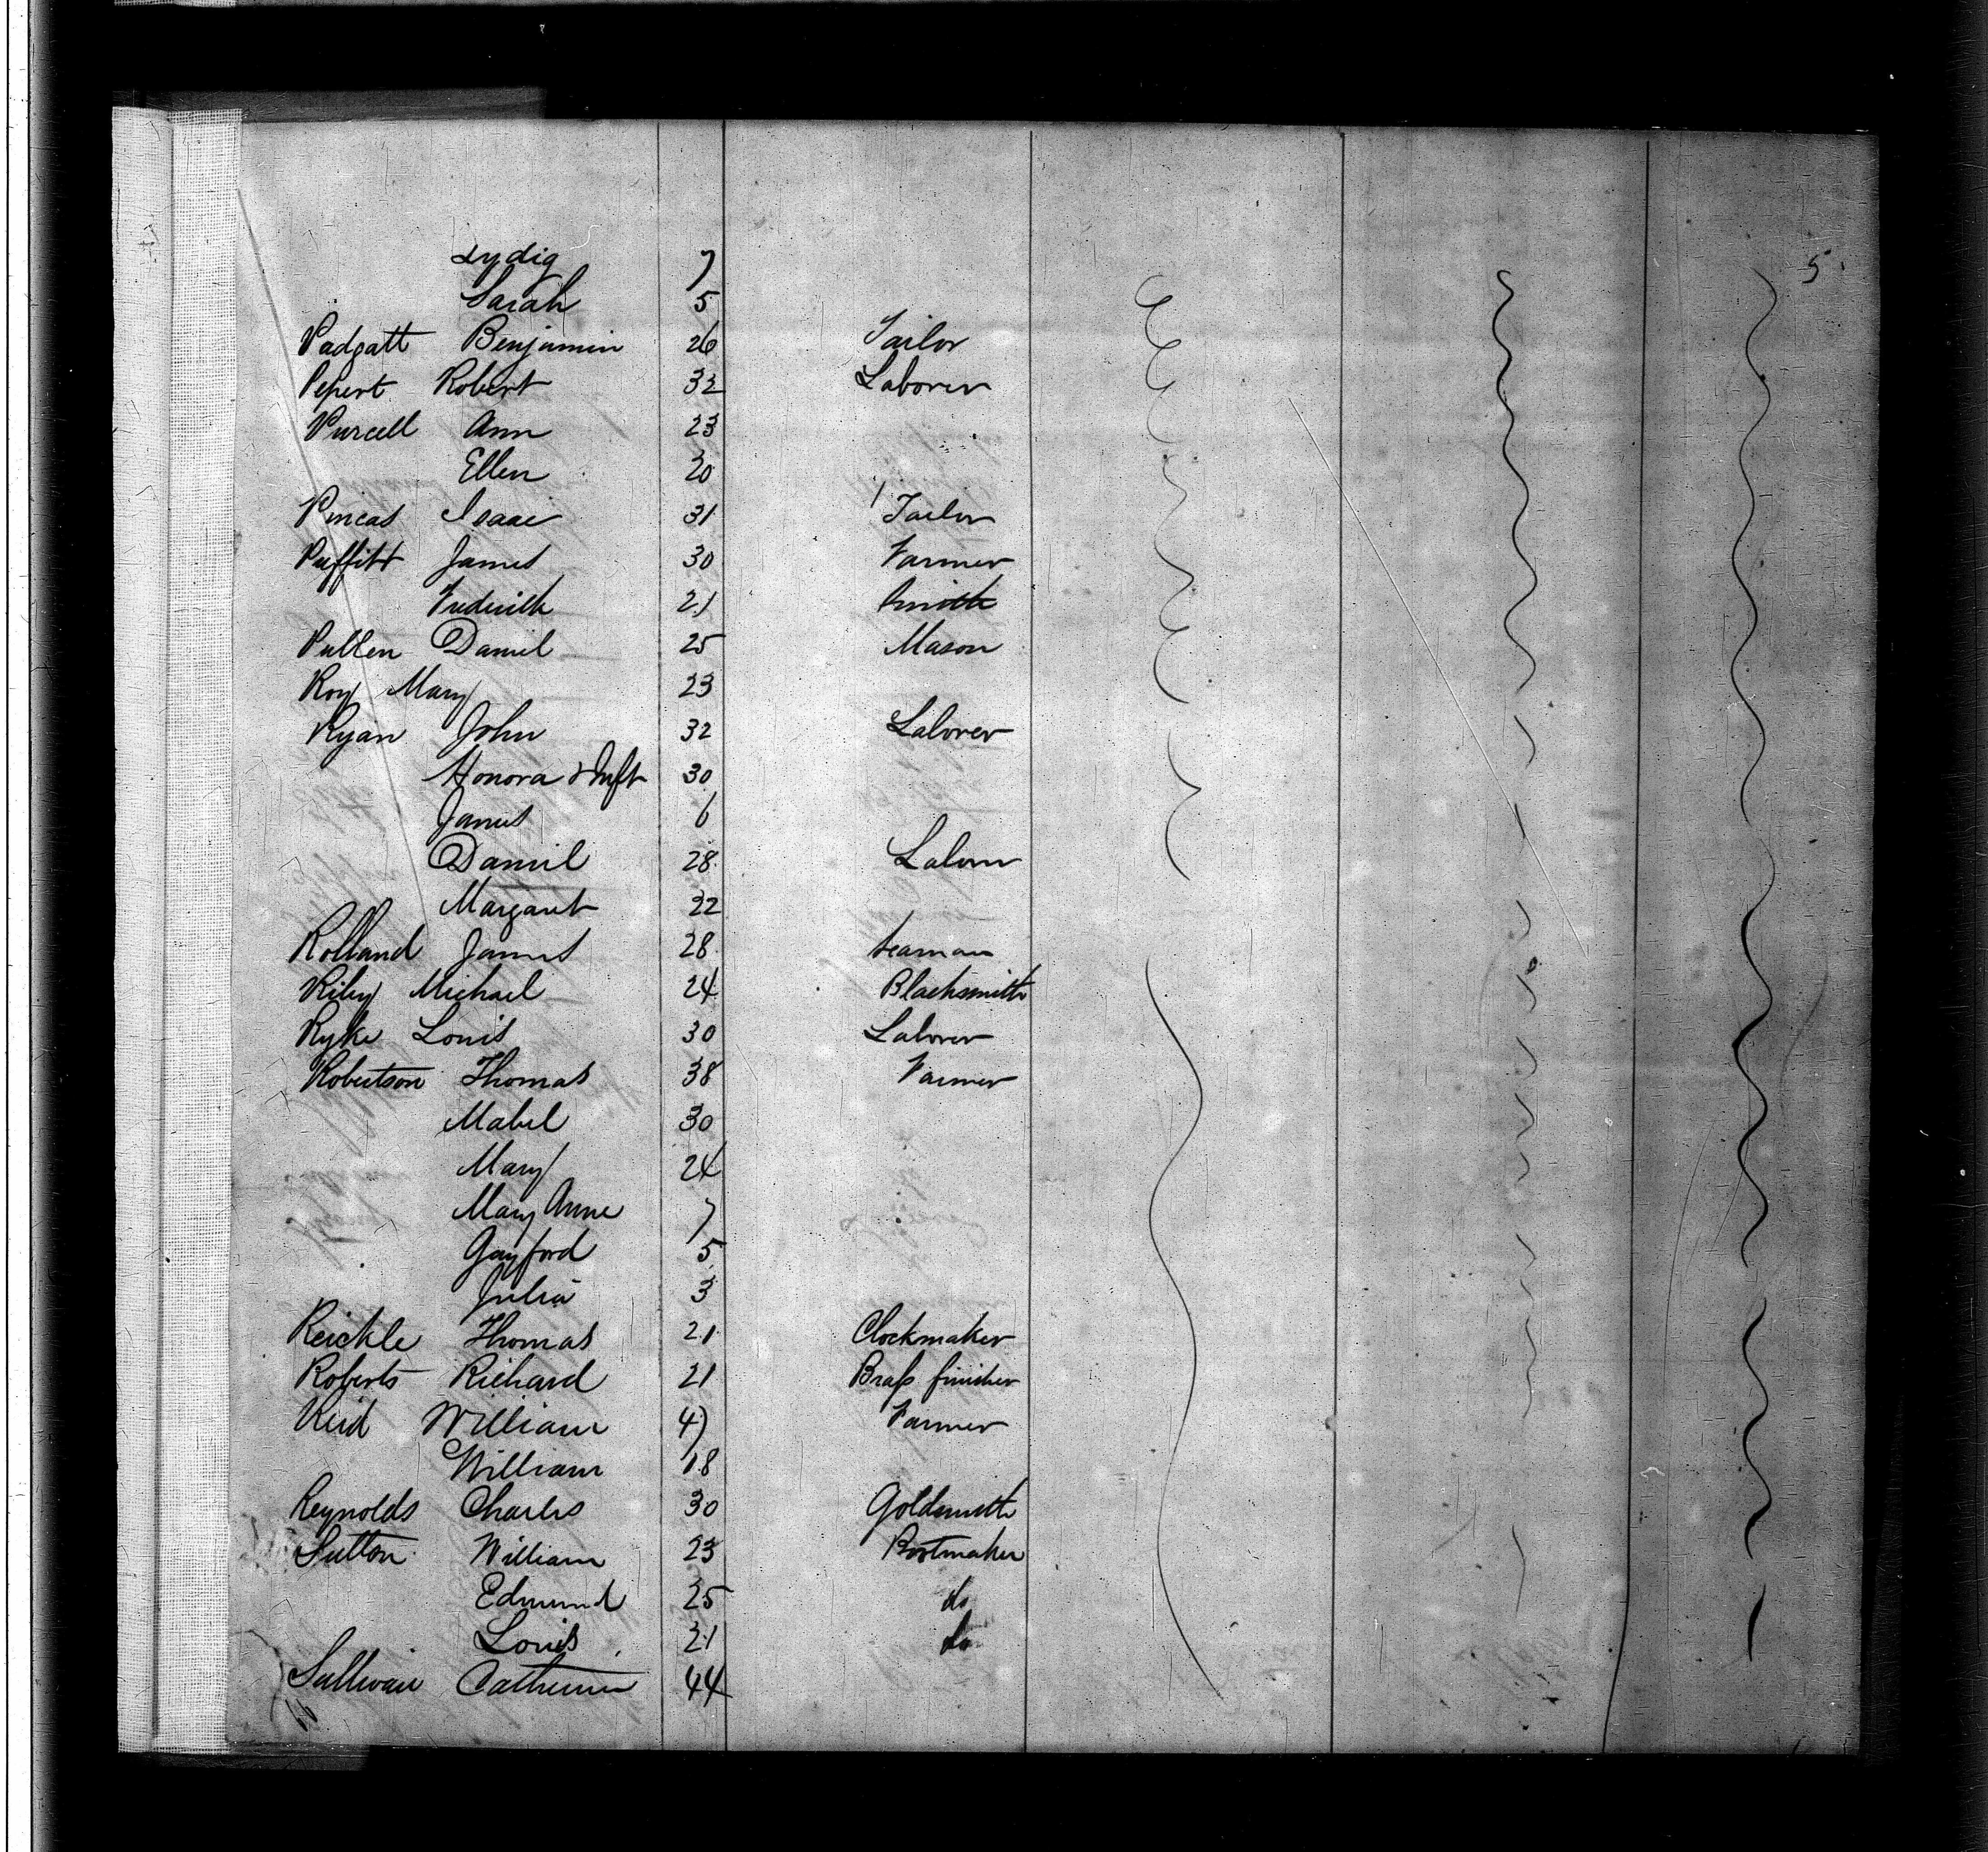 Lydia 7 5
Sarah 5
Padgatt Benjamin 26 Tailor
Pepert Robert 32 Laborer
Purcell Ann 23
Ellen 20
Pincas Isaac 31 Tailor
Puffitt James 30 Farmer
Frederick 21 Smith
Pullen Daniel 25 Mason
Roy Mary 23
Ryan John 32 Laborer
Honora & Inft 30
James 6
Daniel 28 Laborer
Margaret 22
Rolland James 28 Seaman
Riley Michael 24 Blacksmith
Ryke Louis 30 Laborer
Robertson Thomas 38 Farmer
Mabel 30
Mary 24
Mary Anne 7
Gayford 5
Julia 3
Reickle Thomas 21 Clockmaker
Roberts Richard 21 Brass finisher
Reid William 47 Farmer
William 18
Reynolds Charles 30 Goldsmith
Sutton William 23 Bootmaker
Edmund 25 do
Louis 21 do
Sullivan Catherine 44